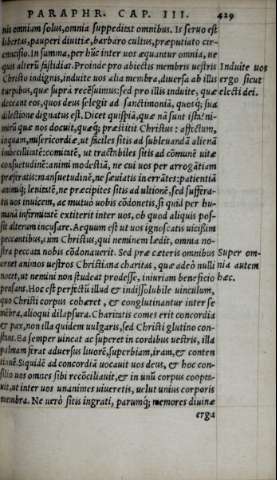 PARAPHR. CAP. III. 429
nis omniam solus, omnia suppeditat omnibus. Is seruo est
libertas, pauperi diuitiæ, barbaro cultus, præputiato cir-
cuncisio. In summa, per hūc inter uos æquantur omnia, ne
quis alterū fastidiat. Proinde pro abiectis membris uestris
Christo indignis, induite uos alia membra, diuersa ab illis
turpibus, quæ supra recēsuimus: sed pro illis induite, quæ
deceant eos, quos deus selegit ad sanctimoniā, quosq́; sua
dilectione dignatus est. Dicet quispiā, quæ nā sunt ista? ni-
mirū quæ nos docuit, quæq́; præstitit Christus: affectum,
inquam, misericordiæ, ut faciles sitis ad subleuandā alienā
imbecillitatē: comitatē, ut tractabiles sitis ad cōmunē uitæ
consuetudinē: animi modestiā, ne cui uos per arrogātiam
præferatis: mansuetudinē, ne sæuiatis in errātes: patientiā
animiq́; lenitatē, ne præcipites sitis ad ultionē, sed suffera-
tis uos inuicem, ac mutuò uobis cōdonetis, si quid per hu-
manā infirmitatē extiterit inter uos, ob quod aliquis pos-
sit alterum incusare. Aequum est ut uos ignoscatis uicißim
peccantibus, cum Christus, qui neminem lædit, omnia no-
stra peccata nobis cōdonauerit. Sed præ cæteris omnibus
ornet animos uestros Christiana charitas, quæ adeò nulli
nocet, ut nemini non studeat prodesse, iniuriam beneficio
pensans. Hoc est perfectū illud & indissolubile uinculum,
quo Christi corpus cohæret, & conglutinantur inter se
mēbra, alioqui dilapsura. Charitatis comes erit concordia
& pax, non illa quidem uulgaris, sed Christi glutino con-
stans. Ea semper uincat ac superet in cordibus uestris, illa
palmam ferat aduersus liuorē, superbiam, iram, & conten
tionē. Siquidē ad concordiā uocauit uos deus, & hoc con-
silio uos omnes sibi recōciliauit, & in unū corpus coopta-
uit, ut inter uos unanimes uiueretis, uelut unius corporis
membra. Ne uerò sitis ingrati, parumq́; memores diuinæ
erga
Induite uos
ergo sicut
electi dei.
Super om-
nia autem
hæc.